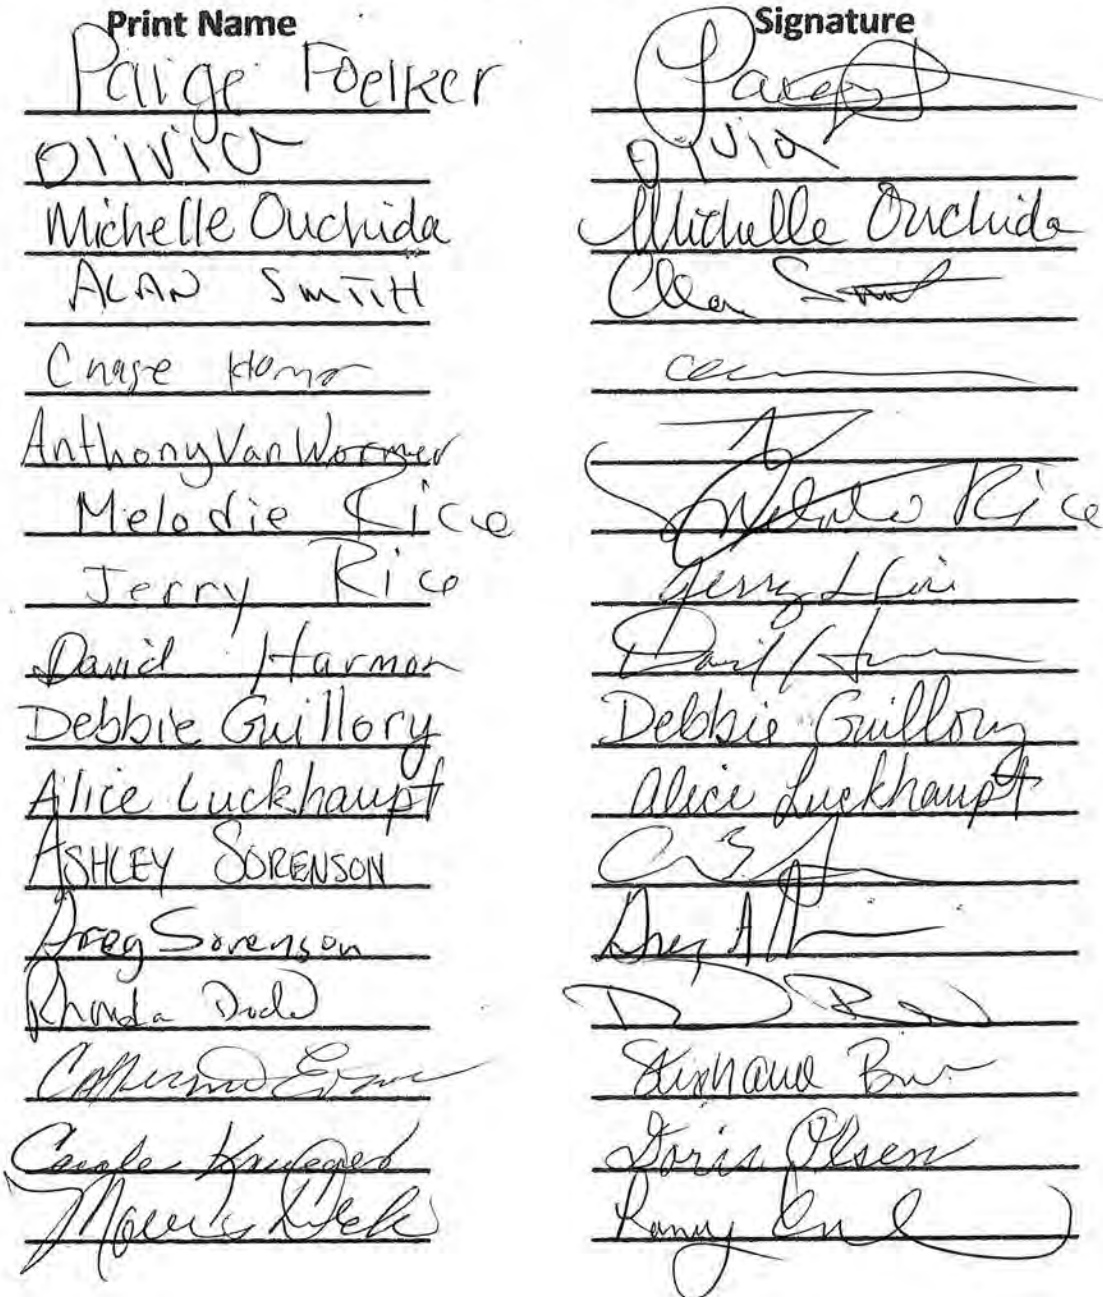 Print Name Signature
Paige Foelker Paige
Olivia Olivia
Michelle Ouchida Michelle Ouchida
ALAN SMITH Alan Smith
Chase
Anthony Van Wormer
Melodie Rice Melodie Rice
Jerry Rice Jerry L Rice
David Harmon David
Debbie Guillory Debbie Guillory
Alice Luckhaupt Alice Luckhaupt
ASHLEY SORENSON
Greg Sorenson Greg
Rhonda
Catherine Stephanie
Carole Krueger Doris Olsen